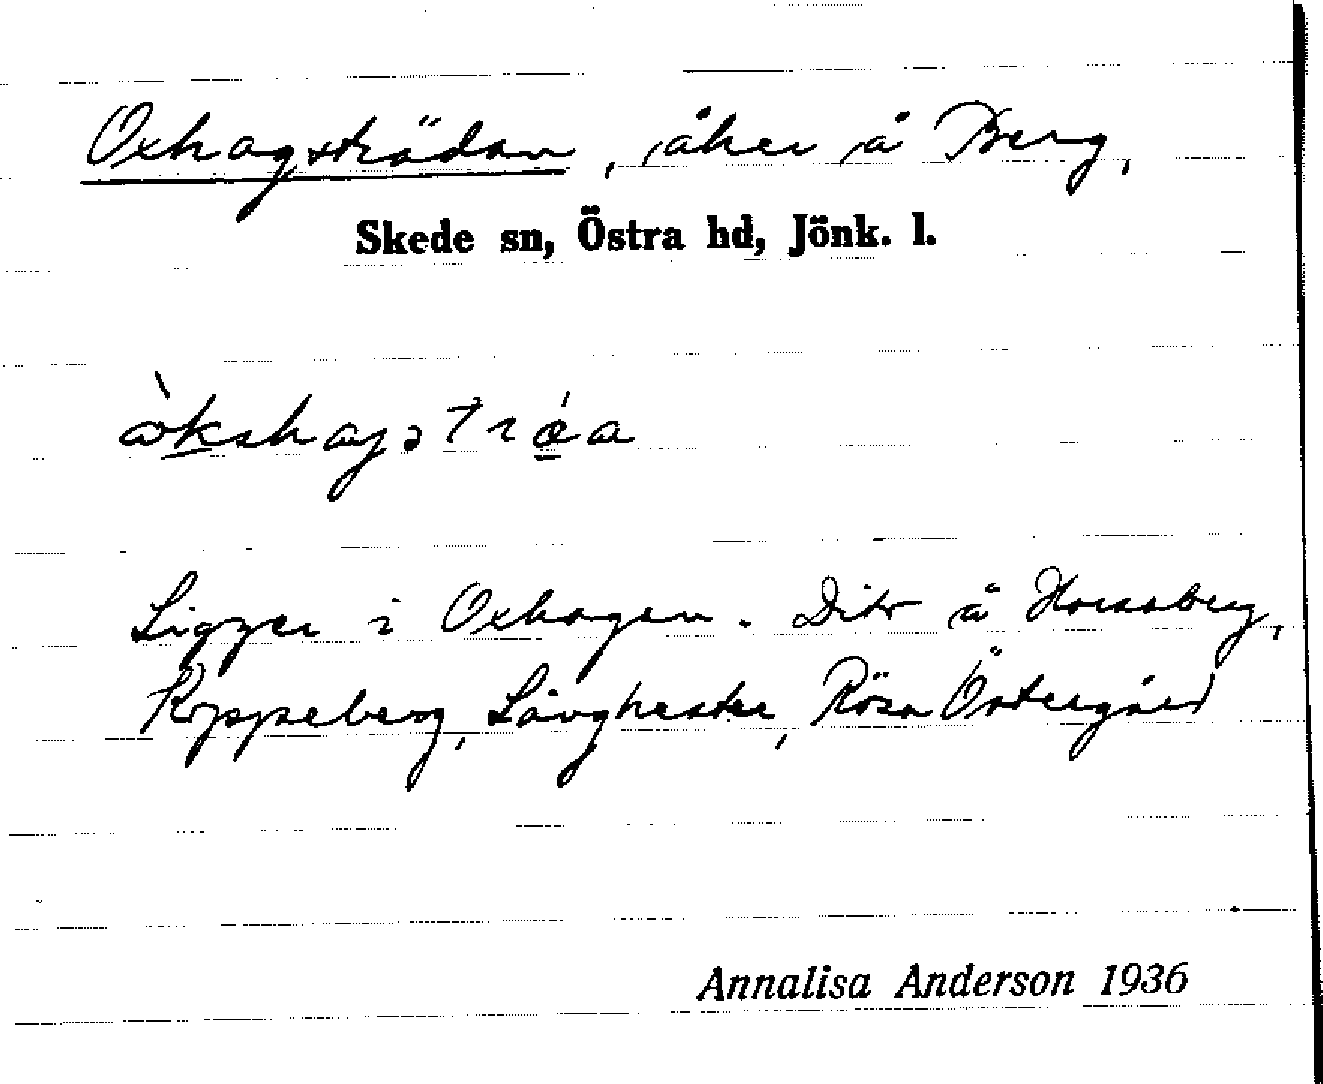 Oxhagsträdan, åker å Berg,
Skede sn, Östra hd, Jönk. l.
Ligger i Oxhagen. Dito å Horssberg,
Koppeberg, Lövghester, Rösa Östergård
Annalisa Anderson 1936